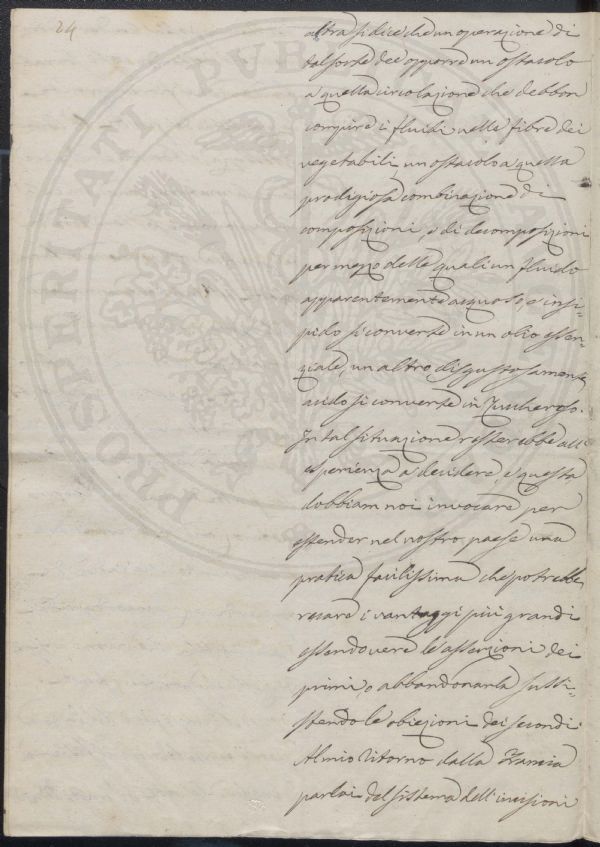 24
altra si dice che un operazione di
tal sorte dee opporre un ostacolo
a quella circolazione che debbon
compire i fluidi nelle fibre dei
vegetabili, un ostacolo a quella
prodigiosa combinazione di
composizioni, e di decomposizioni
per mezzo delle quali un fluido
apparentemente acquoso, e insi-
pido si converte in un olio essen-
ziale, un altro disgustosamente
acido si converte in Zuccheroso.
In tal situazione resterebbe all'
esperienza a decidere, e questa
dobbiam noi invocare per
estender nel nostro paese una
pratica facilissima che potrebbe
recare i vantaggi più grandi
essendo vere le asserzioni dei
primi, o abbandonarla sussi-
stendo le obiezioni dei secondi.
Al mio ritorno dalla Francia
parlai del sistema dell'incisioni
PROSPERITATI PUBLICAE